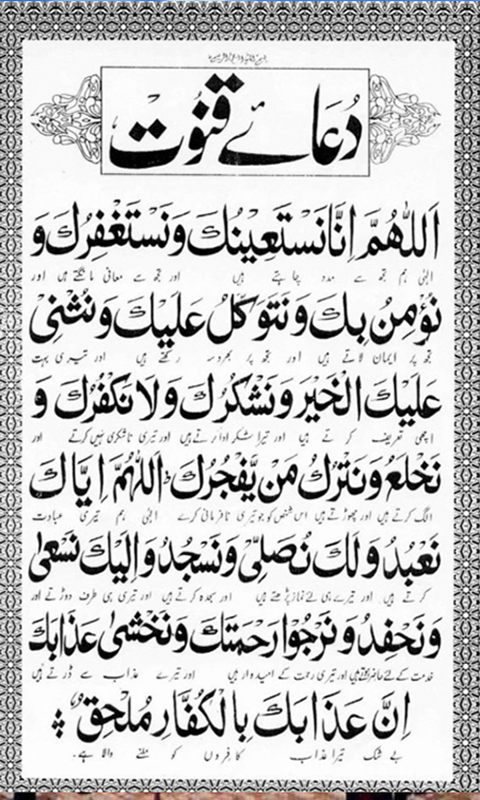 دُعَائے قنُوت
اَللّٰهُمَّ اِنَّا نَسْتَعِيْنُكَ وَنَسْتَغْفِرُكَ وَ
الہٰی ہم تجھ سے مدد چاہتے ہیں اور تجھ سے معافی مانگتے ہیں اور
نُؤْمِنُ بِكَ وَنَتَوَكَّلُ عَلَيْكَ وَنُثْنِىْ
تجھ پر ایمان لاتے ہیں اور تجھ پر بھروسہ رکھتے ہیں اور تیری بہت
عَلَيْكَ الْخَيْرَ وَنَشْكُرُكَ وَلَا نَكْفُرُكَ وَ
اچھی تعریف کرتے ہیں اور تیرا شکر ادا کرتے ہیں اور تیری ناشکری نہیں کرتے اور
نَخْلَعُ وَنَتْرُكُ مَنْ يَّفْجُرُكَ اَللّٰهُمَّ اِيَّاكَ
الگ کرتے ہیں اور چھوڑتے ہیں اس شخص کو جو تیری نافرمانی کرے الہٰی ہم تیری عبادت
نَعْبُدُ وَلَكَ نُصَلِّىْ وَنَسْجُدُ وَاِلَيْكَ نَسْعٰى
کرتے ہیں اور تیرے ہی لئے نماز پڑھتے ہیں اور سجدہ کرتے ہیں اور تیری ہی طرف دوڑتے اور
وَنَحْفِدُ وَنَرْجُوْا رَحْمَتَكَ وَنَخْشٰى عَذَابَكَ
خدمت کے لئے حاضر ہوتے ہیں اور تیری رحمت کے امیدوار ہیں اور تیرے عذاب سے ڈرتے ہیں
اِنَّ عَذَابَكَ بِالْكُفَّارِ مُلْحِقٌ
بے شک تیرا عذاب کافروں کو ملنے والا ہے۔